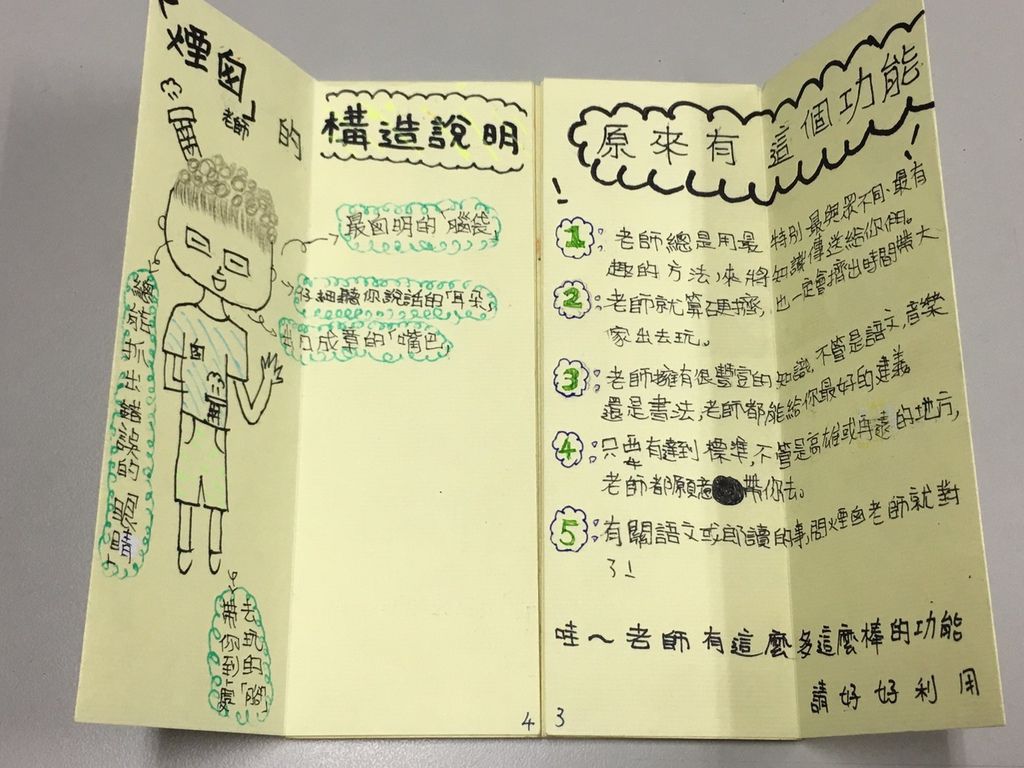 煙囪
老師
的
構造說明
最囪明的「腦袋」
仔細聽你說話的「耳朵」
出口成章的「嘴巴」
囪
去玩的「腳」
帶你到處
4
原來有這個功能
!
!
1:老師總是用最特別、最與眾不同、最有
趣的方法,來將知識傳送給你們。
2:老師就算硬擠,也一定會擠出時間帶大
家出去玩。
3:老師擁有很豐富的知識,不管是語文,音樂
還是書法,老師都能給你最好的建義
4:只要有達到標準,不管是高雄或再遠的地方,
老師都願意帶你去。
5:有關語文或郎讀的事,問煙囪老師就對
了!
哇~老師有這麼多這麼棒的功能
請好好利用
3